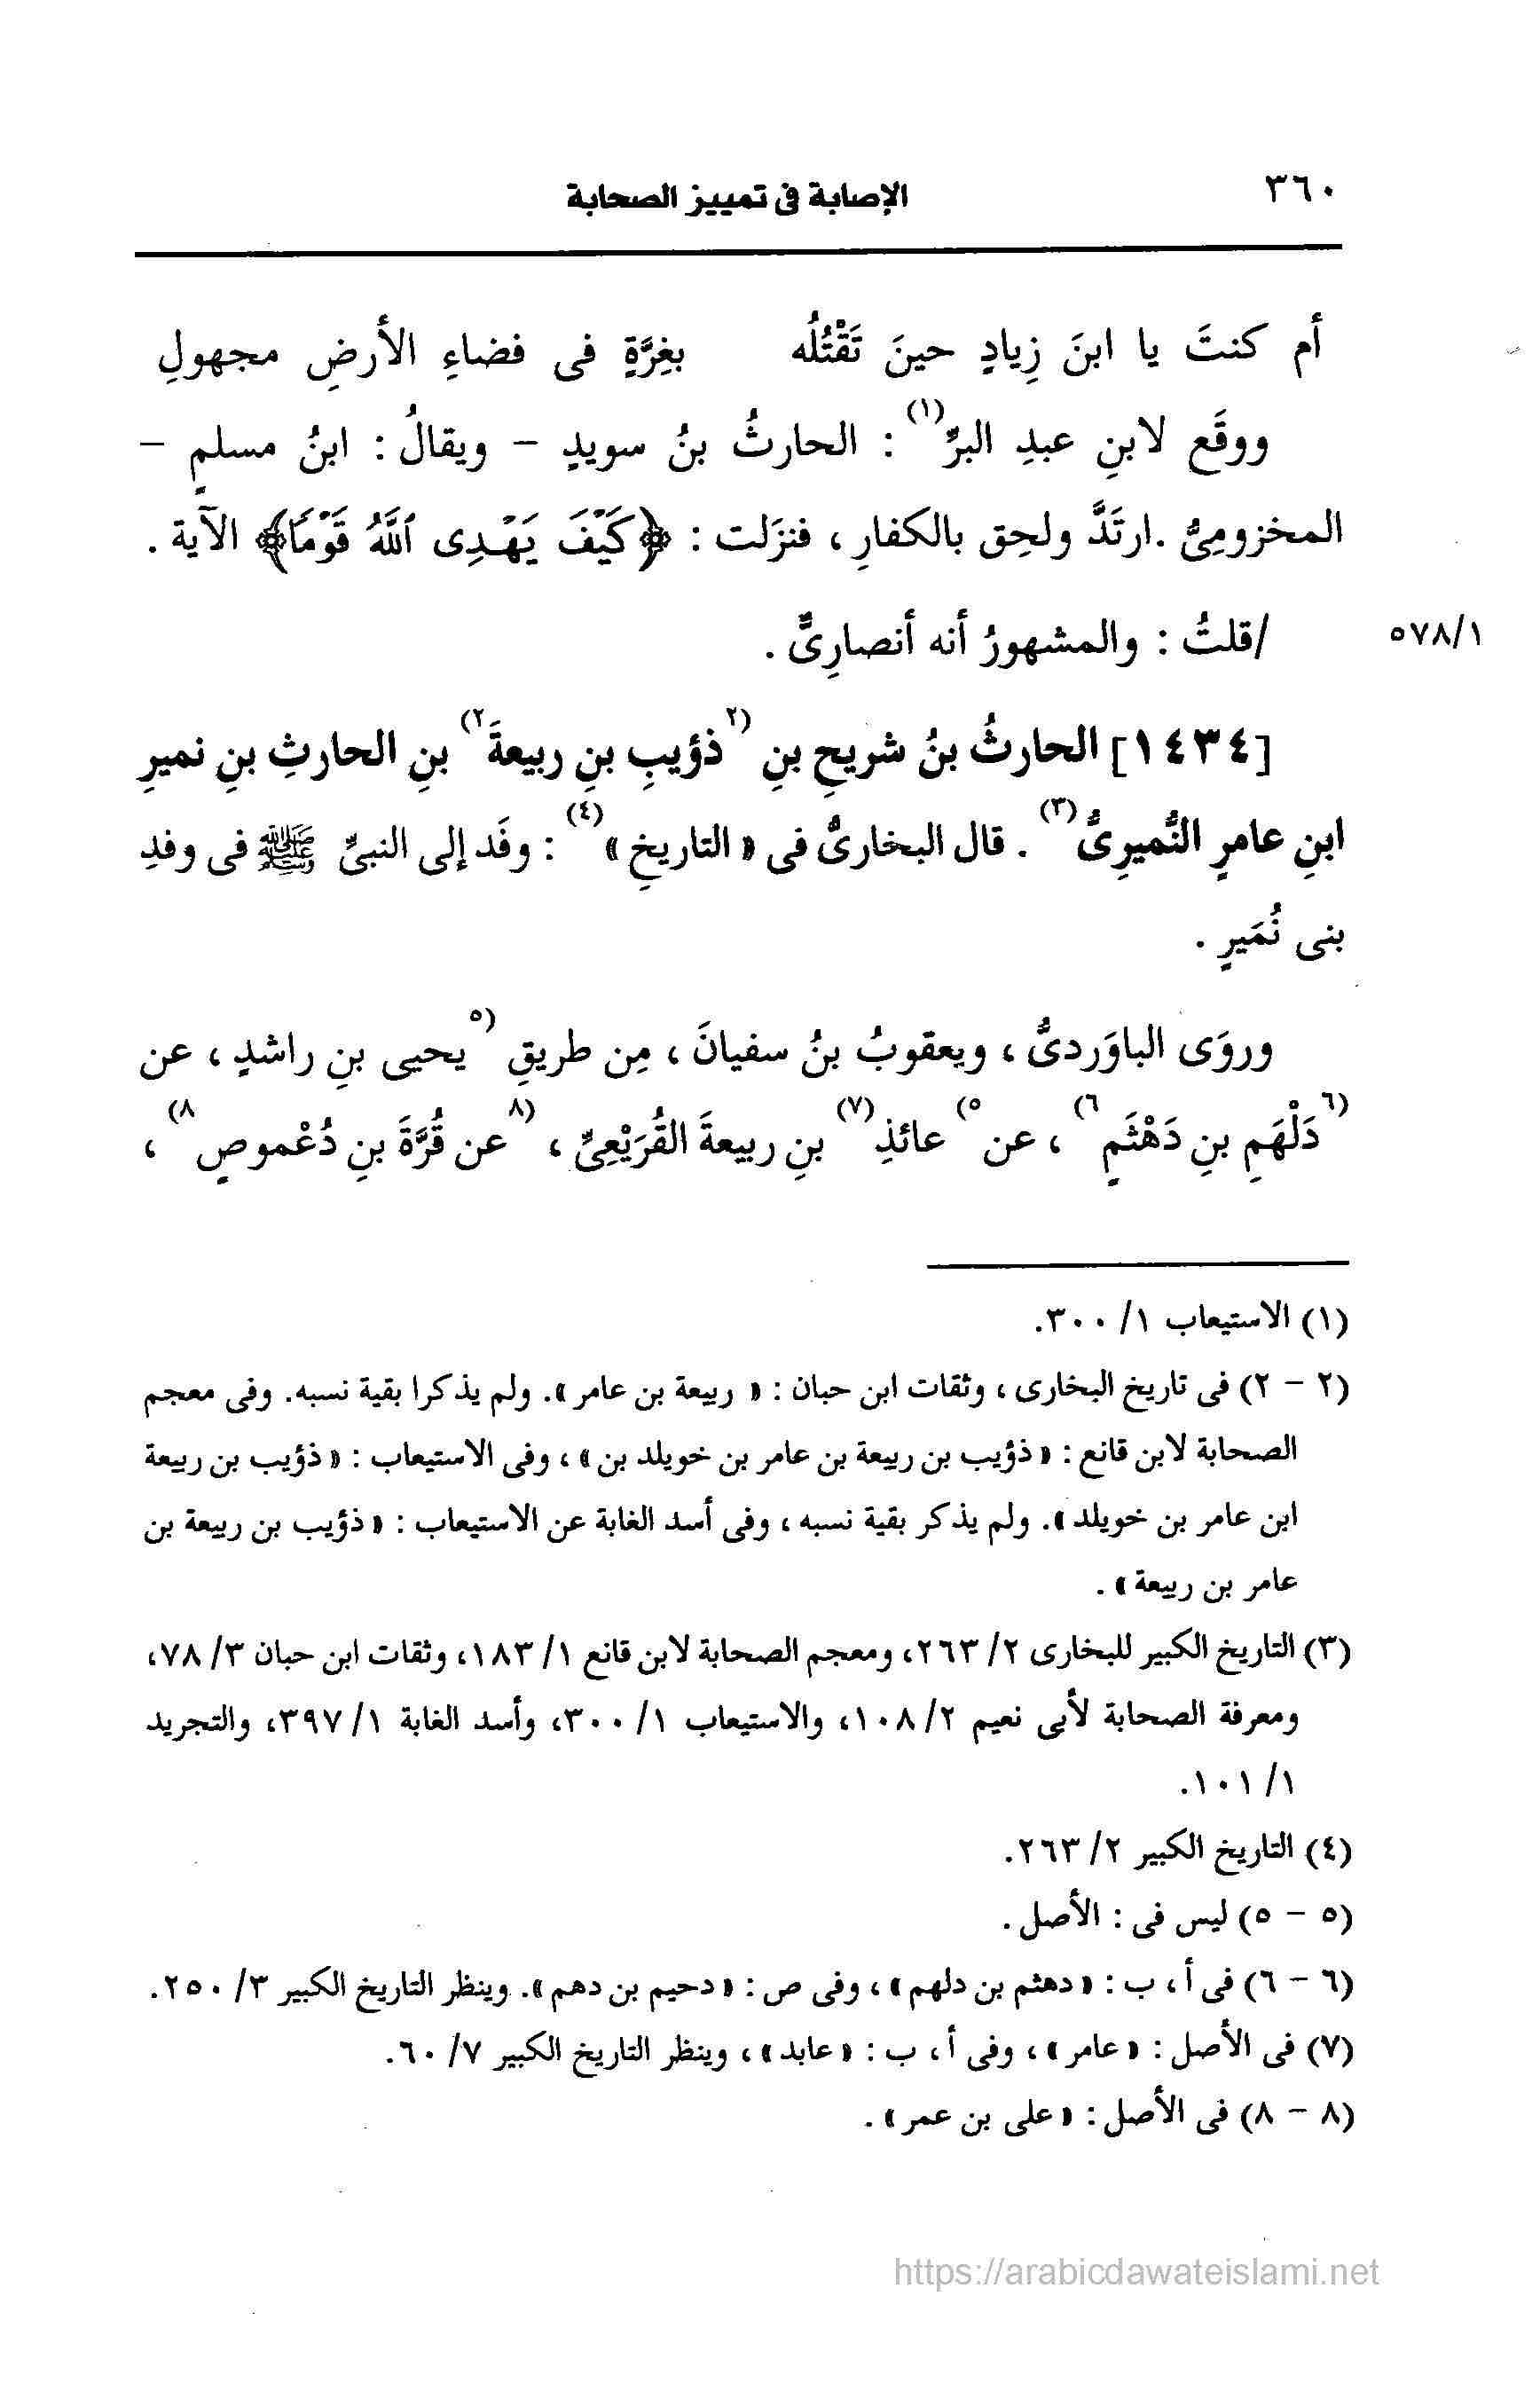 ٣٦٠
الإصابة فى تمييز الصحابة
أم كنتَ يا ابنَ زِيادٍ حينَ تَقْتُلُه بغِرَّةٍ فى فضاءِ الأرضِ مجهولِ
ووقَع لابنِ عبدِ البرِّ(١) : الحارثُ بنُ سويدٍ – ويقالُ : ابنُ مسلمٍ –
المخزومِىُّ .ارتَدَّ ولحِق بالكفارِ ، فنزَلت : ﴿كَيْفَ يَهْدِى ٱللَّهُ قَوْمًا﴾ الآية .
٥٧٨/١
/قلتُ : والمشهورُ أنه أنصارِىٌّ .
[١٤٣٤] الحارثُ بنُ شريحِ بنِ (٢ذؤيبِ بنِ ربيعةَ٢) بنِ الحارثِ بنِ نميرِ
ابنِ عامرٍ النُّميرِىُّ(٣) . قال البخارىُّ فى « التاريخِ »(٤) : وفَد إلى النبىِّ ﷺ فى وفدِ
بنى نُمَيرٍ .
وروَى الباوَردىُّ ، ويعقوبُ بنُ سفيانَ ، مِن طريقِ (٥يحيى بنِ راشدٍ ، عن
(٦دَلْهَمِ بنِ دَهْثَمٍ٦) ، عن٥) عائذِ(٧) بنِ ربيعةَ القُرَيْعِىِّ ، (٨عن قُرَّةَ بنِ دُعْموصٍ٨) ،
(١) الاستيعاب ١/ ٣٠٠.
(٢ – ٢) فى تاريخ البخارى ، وثقات ابن حبان : « ربيعة بن عامر ». ولم يذكرا بقية نسبه. وفى معجم
الصحابة لابن قانع : « ذؤيب بن ربيعة بن عامر بن خويلد بن » ، وفى الاستيعاب : « ذؤيب بن ربيعة
ابن عامر بن خويلد ». ولم يذكر بقية نسبه ، وفى أسد الغابة عن الاستيعاب : « ذؤيب بن ربيعة بن
عامر بن ربيعة » .
(٣) التاريخ الكبير للبخارى ٢/ ٢٦٣، ومعجم الصحابة لابن قانع ١/ ١٨٣، وثقات ابن حبان ٣/ ٧٨،
ومعرفة الصحابة لأبى نعيم ٢/ ١٠٨، والاستيعاب ١/ ٣٠٠، وأسد الغابة ١/ ٣٩٧، والتجريد
١/ ١٠١.
(٤) التاريخ الكبير ٢/ ٢٦٣.
(٥ – ٥) ليس فى : الأصل .
(٦ – ٦) فى أ ، ب : « دهثم بن دلهم » ، وفى ص : « دحيم بن دهم ». وينظر التاريخ الكبير ٣/ ٢٥٠.
(٧) فى الأصل : « عامر » ، وفى أ ، ب : « عابد » ، وينظر التاريخ الكبير ٧/ ٦٠.
(٨ – ٨) فى الأصل : « على بن عمر » .
https://arabicdawateislami.net